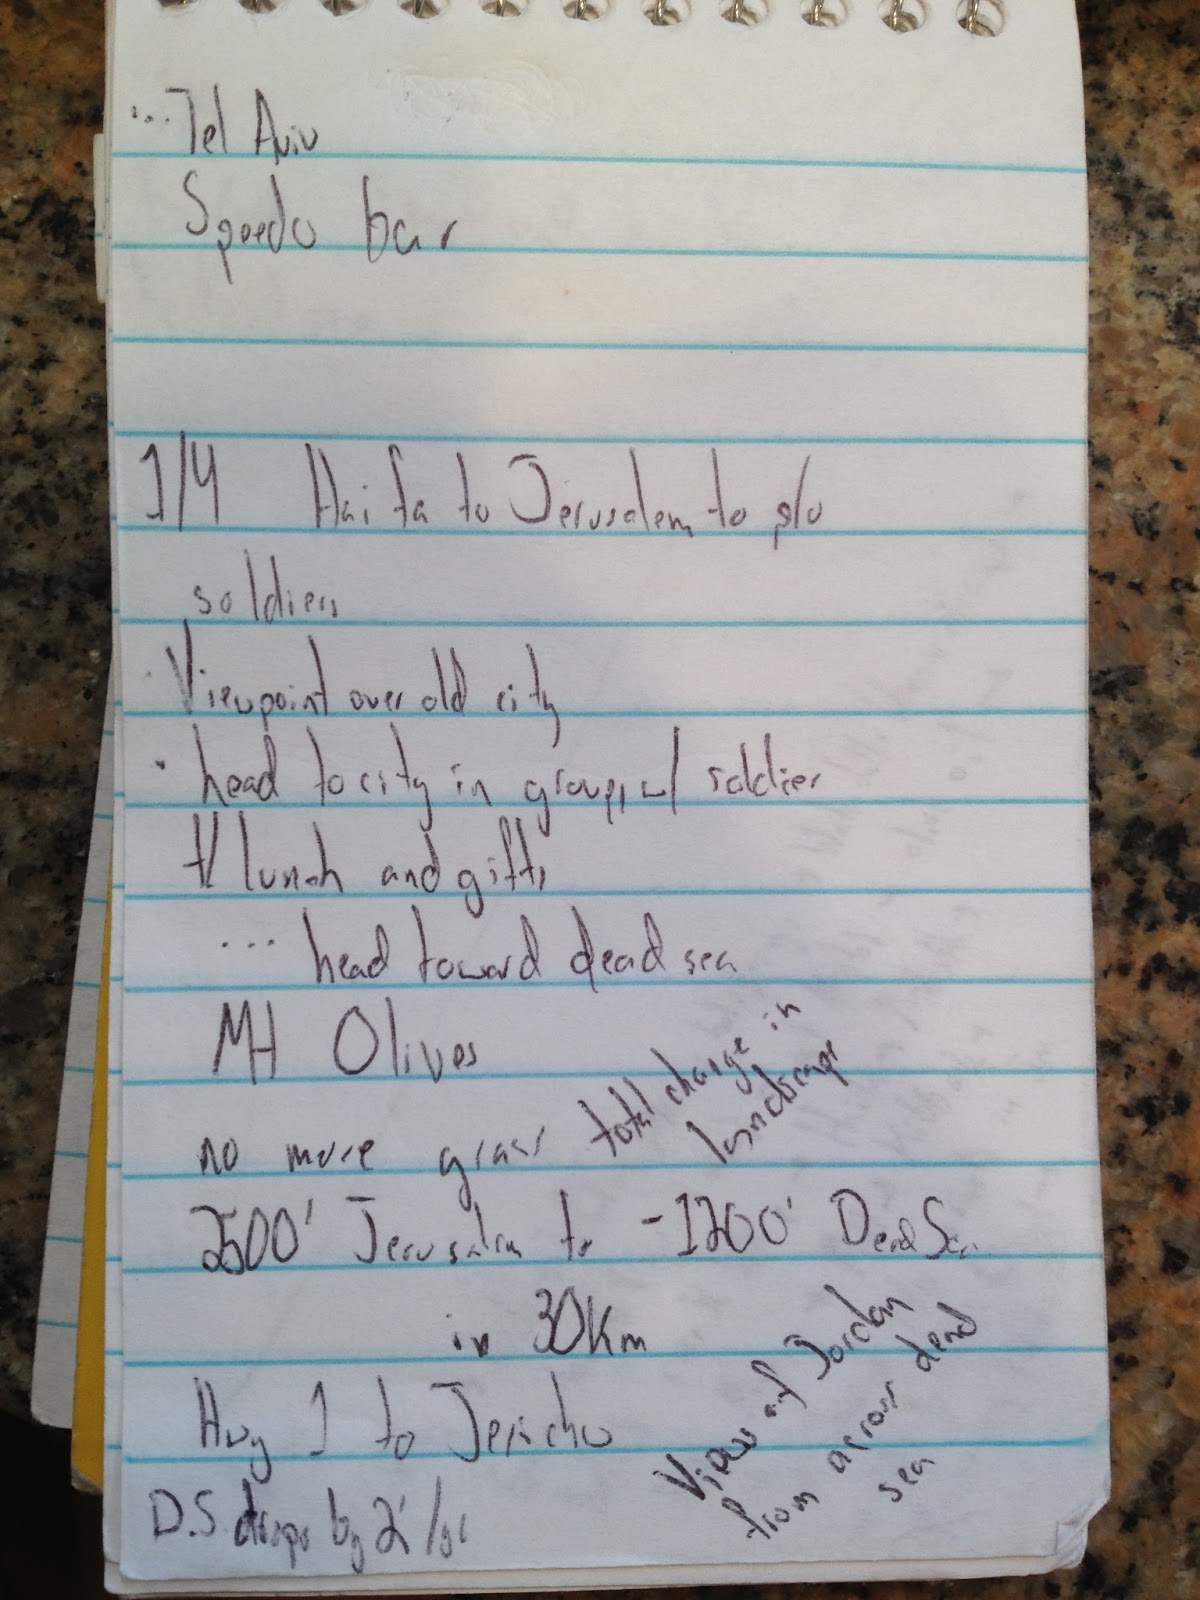 ... Tel Aviv
Speedo bar
1/4 Haifa to Jerusalem to p/u
soldiers
· Viewpoint over old city
· head to city in groups w/ soldier
lunch and gifts
... head toward dead sea
Mt Olives
no more grass
total change in
landscape
2500' Jerusalem to -1200' Dead Sea
in 30Km
Hwy 1 to Jericho
View of Jordan
from across dead
sea
D.S. drops by 2'/yr